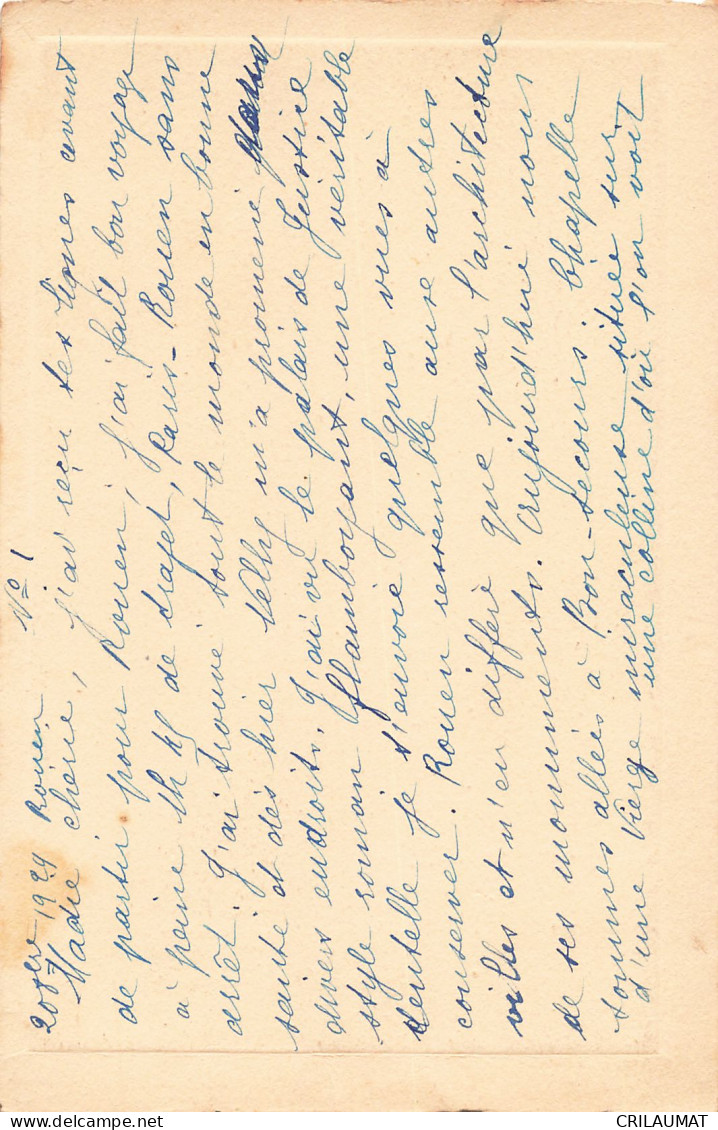 20 7bre 1929 Rouen Nº 1
Madie chérie, j'ai reçu tes lignes avant
de partir pour Rouen, j'ai fait bon voyage
à peine 1h ½ de trajet, Paris-Rouen sans
arrêt. J'ai trouvé tout le monde en bonne
santé et dès hier m'a promené
divers endroits. J'ai vu le palais de Justice
style roman flamboyant, une véritable
dentelle je t'envoie quelques vues à
conserver. Rouen ressemble aux autres
villes et n'en diffère que par l'architecture
de ses monuments. Aujourd'hui nous
sommes allées à Bon-secours. Chapelle
d'une Vierge miraculeuse située sur
une colline d'où l'on voit
CRILAUMAT